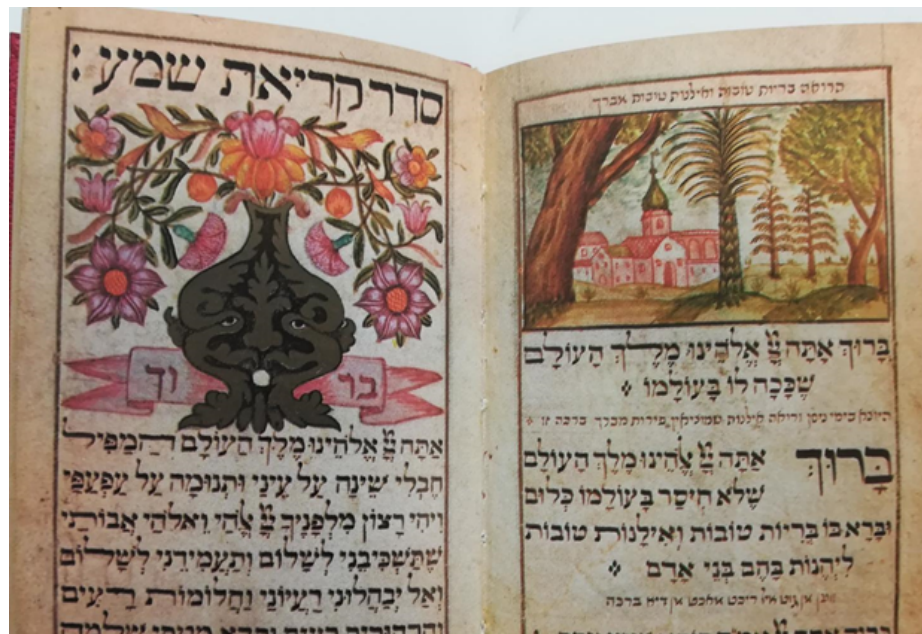 סדר קריאת שמע :
ברוך
אַתָּה יְיָ אֱלֹהֵינוּ מֶלֶךְ הָעוֹלָם הַמַּפִּיל
חֶבְלֵי שֵׁינָה עַל עֵינַי וּתְנוּמָה עַל עַפְעַפַּי
וִיהִי רָצוֹן מִלְּפָנֶיךָ יְיָ אֱלֹהַי וֵאלֹהֵי אֲבוֹתַי
שֶׁתַּשְׁכִּיבֵנִי לְשָׁלוֹם וְתַעֲמִידֵנִי לְשָׁלוֹם
וְאַל יְבַהֲלוּנִי רַעְיוֹנַי וַחֲלוֹמוֹת רָעִים
הרואה בריות טובות ואילנות טובות אומר
בָּרוּךְ אַתָּה יְיָ אֱלֹהֵינוּ מֶלֶךְ הָעוֹלָם
שֶׁכָּכָה לוֹ בָּעוֹלָמוֹ
היוצא בימי ניסן ורואה אילנות שמוציאין פירות מברך ברכה זו
בָּרוּךְ אַתָּה יְיָ אֱלֹהֵינוּ מֶלֶךְ הָעוֹלָם
שֶׁלֹּא חִיסַּר בָּעוֹלָמוֹ כְּלוּם
וּבָרָא בּוֹ בְּרִיּוֹת טוֹבוֹת וְאִילָנוֹת טוֹבוֹת
לֵיהָנוֹת בָּהֶם בְּנֵי אָדָם